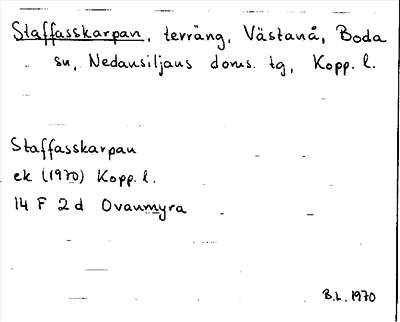 Staffasskarpan, terräng, Västanå, Boda
sn, Nedansiljans doms. tg, Kopp. l.
Staffasskarpan
ek (1970) Kopp. l.
14 F 2 d Ovanmyra
B.L. 1970